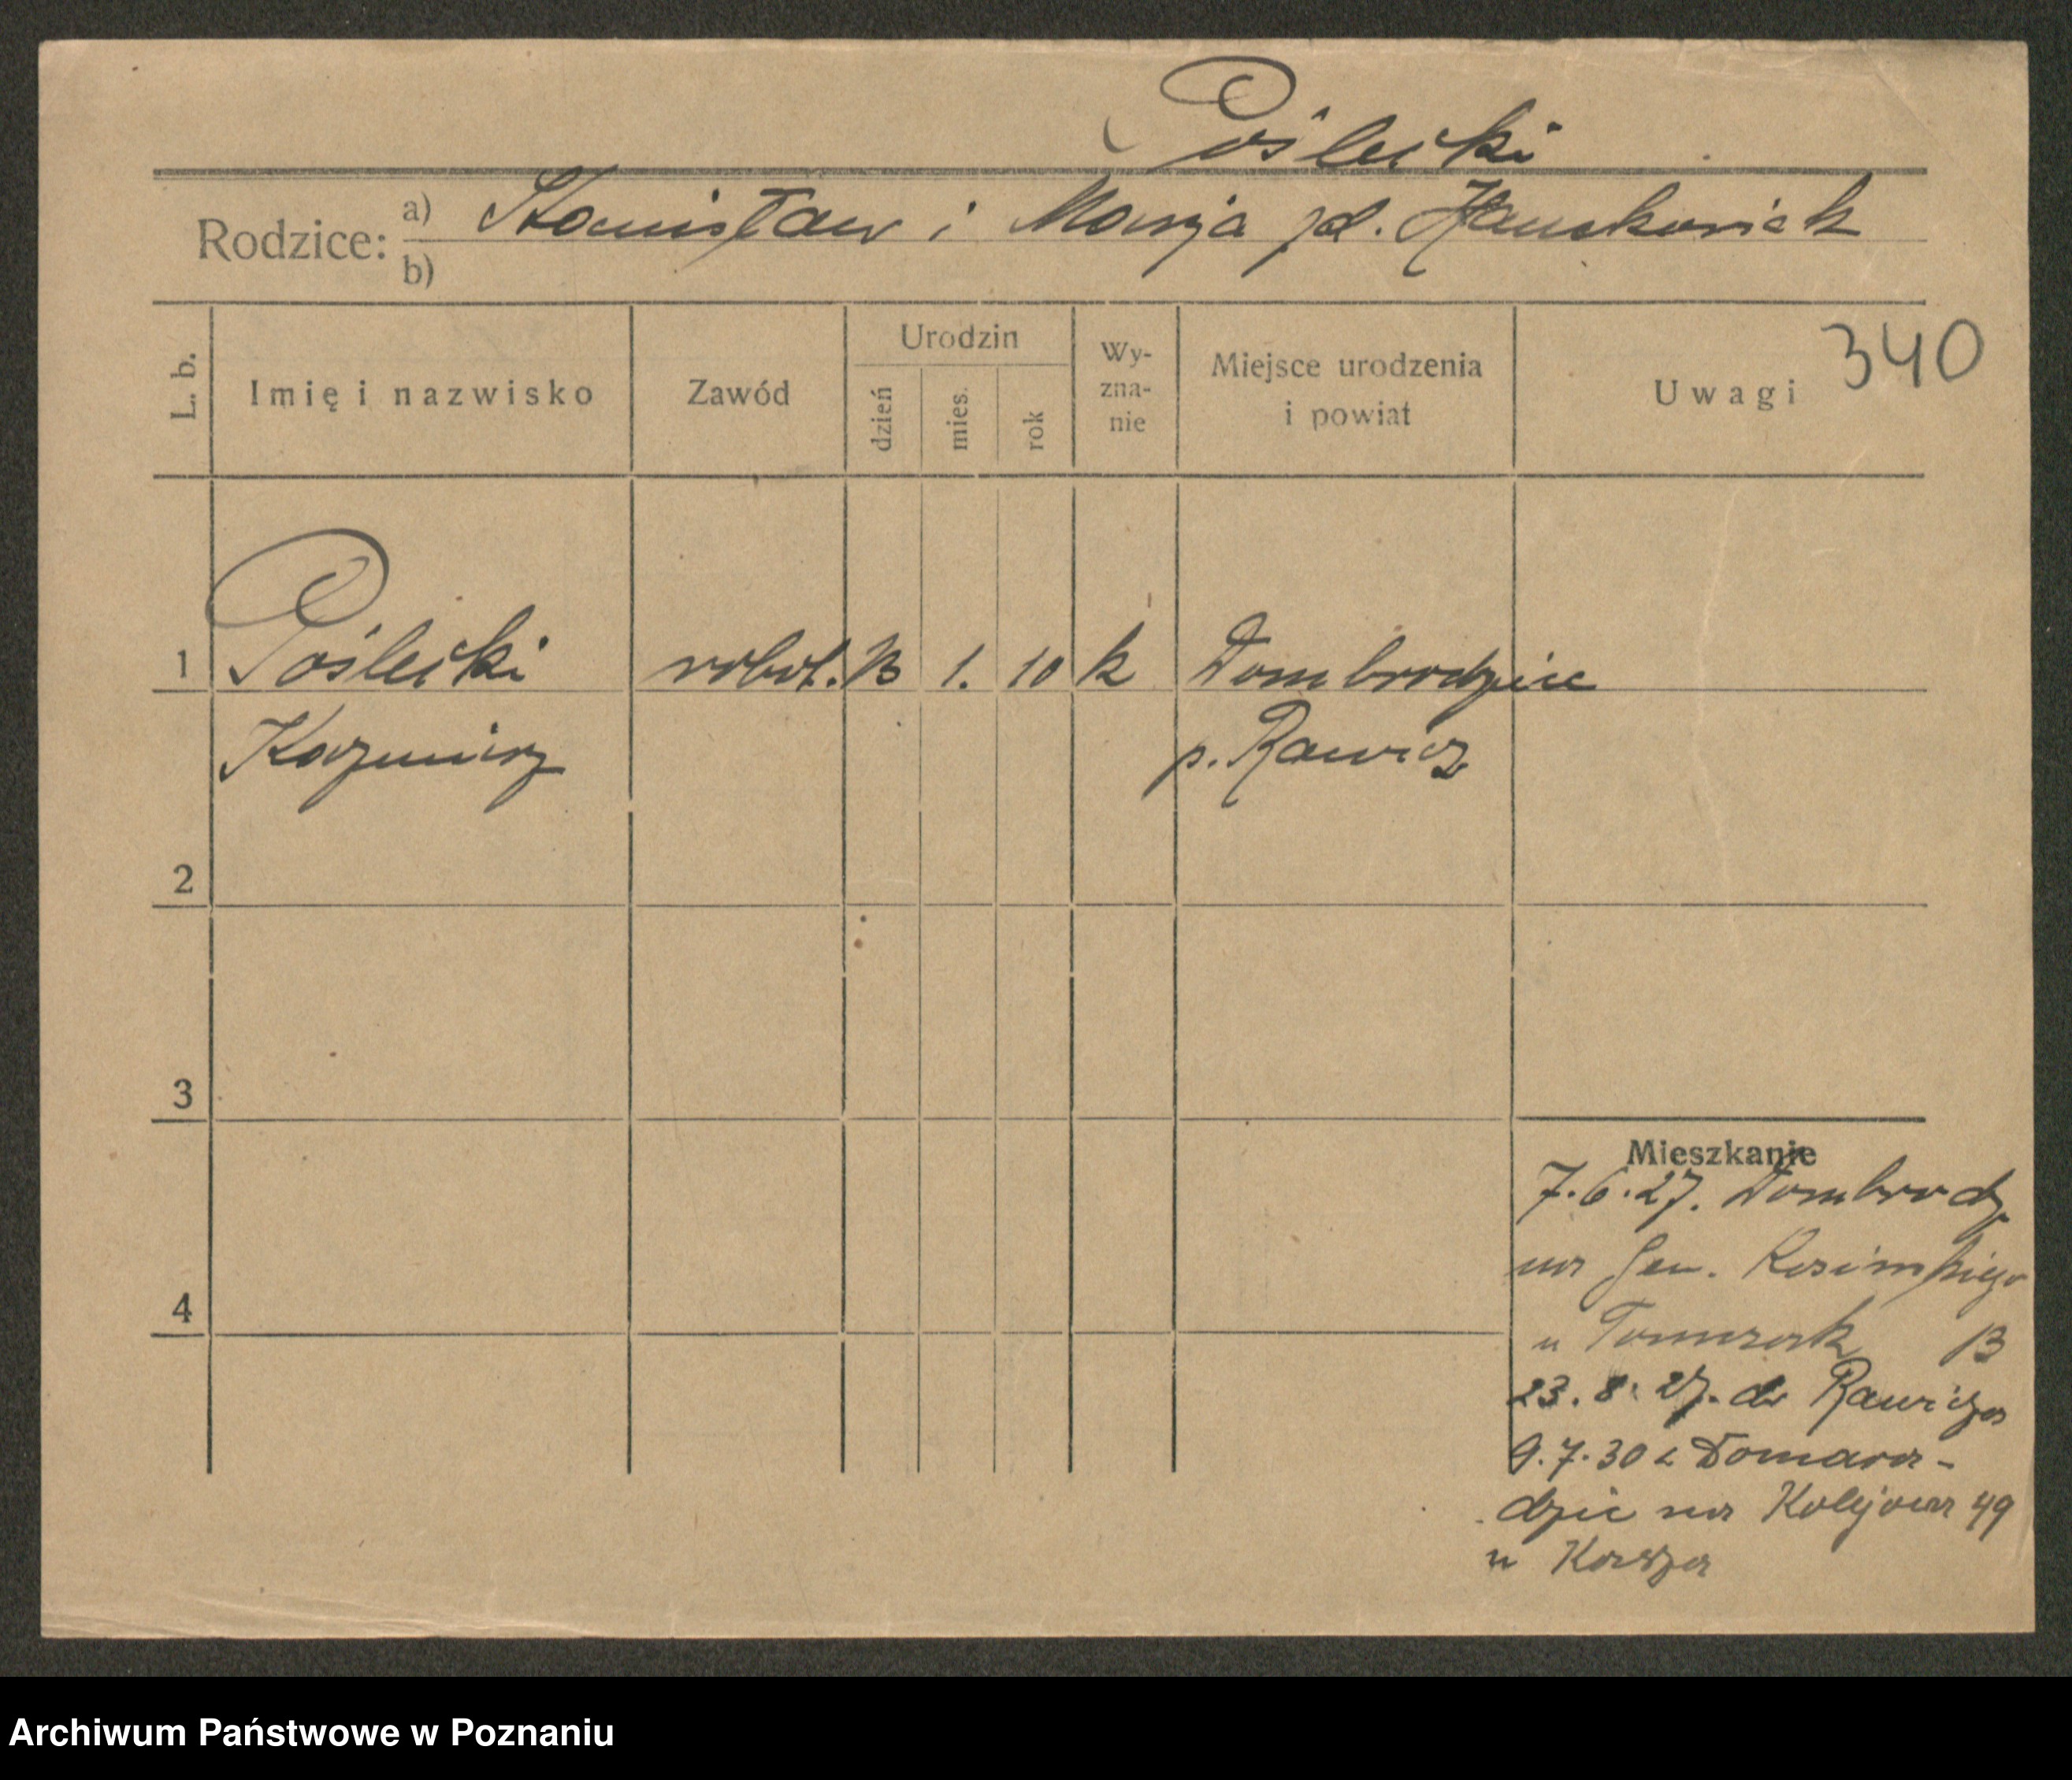 Poślecki
Rodzice: a) Stanisław i Marja zd. Hauckowiak
b)
L. b. Imię i nazwisko Zawód Urodzin dzień mies. rok Wyzna- nie Miejsce urodzenia i powiat Uwagi 340
1 Poślecki robot. 13 1. 10 k Dombrodzice
Kazmierz p. Rawicz
2
3
Mieszkanie
7.6.27. Dombrodz.
na Gen.
4
u 13
23.8.27. do Rawicza
9.7.30 z Domara-
dzic na Kolejowa 49
u
Archiwum Państwowe w Poznaniu